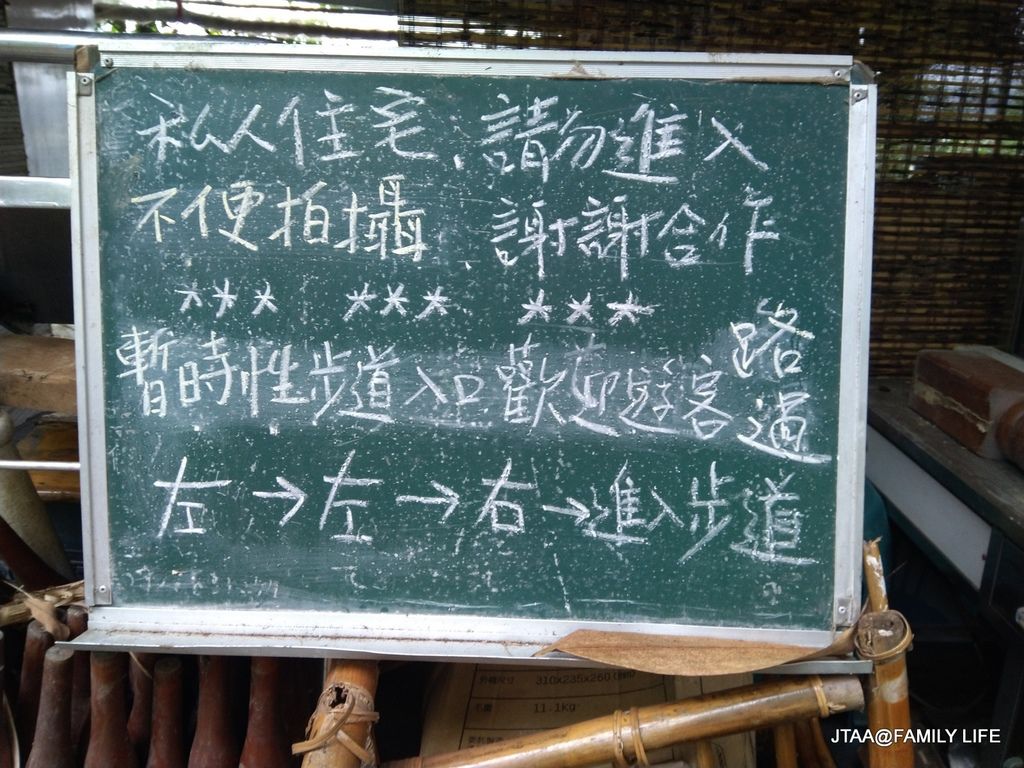 私人住宅、請勿進入
不便拍攝 謝謝合作
*** *** ***
暫時性步道入口歡迎遊客路過
左→左→右→進入步道
310x235x260
11.1kg
JTAA@FAMILY LIFE